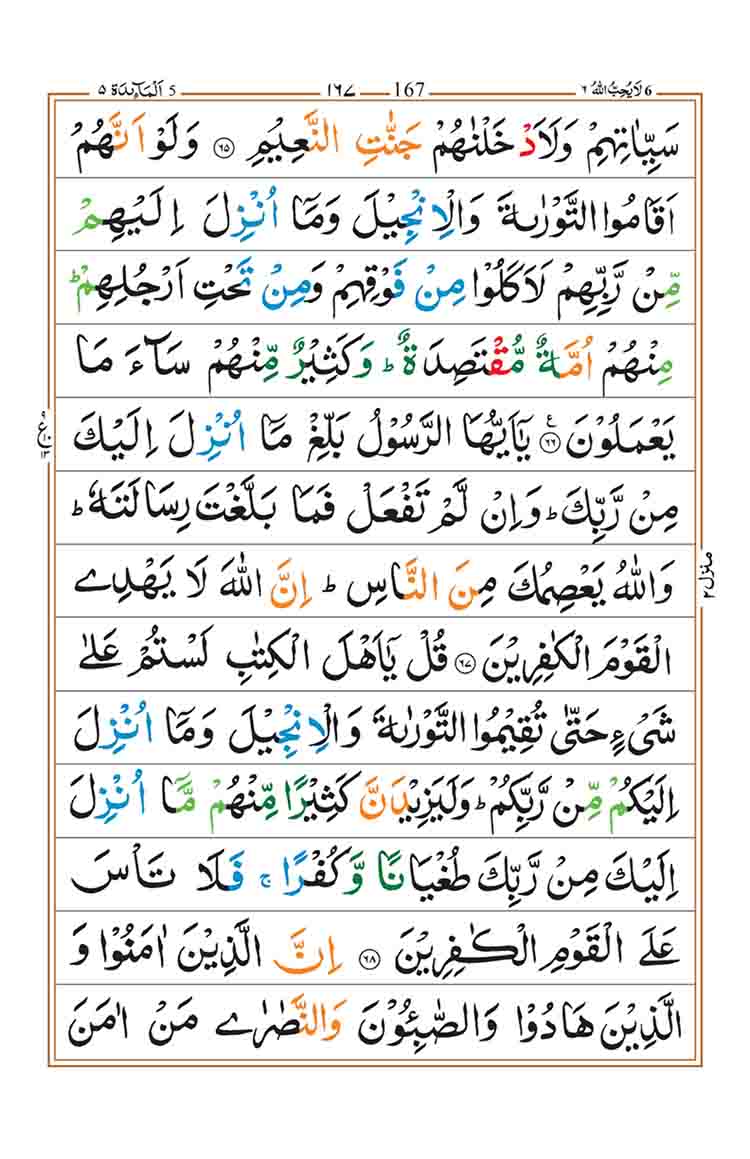 6 لَا يُحِبُّ اللّٰهُ ٦ 167 ١٦٧ 5 اَلْمَآئِدَة ٥
سَيِّاٰتِهِمْ وَلَاَدْخَلْنٰهُمْ جَنّٰتِ النَّعِيْمِ ۝٦٥ وَلَوْ اَنَّهُمْ
اَقَامُوا التَّوْرٰىةَ وَالْاِنْجِيْلَ وَمَاۤ اُنْزِلَ اِلَيْهِمْ
مِّنْ رَّبِّهِمْ لَاَكَلُوْا مِنْ فَوْقِهِمْ وَمِنْ تَحْتِ اَرْجُلِهِمْ ؕ
مِنْهُمْ اُمَّةٌ مُّقْتَصِدَةٌ ؕ وَكَثِيْرٌ مِّنْهُمْ سَآءَ مَا
يَعْمَلُوْنَ ۝٦٦ ع يٰۤاَيُّهَا الرَّسُوْلُ بَلِّغْ مَاۤ اُنْزِلَ اِلَيْكَ
مِنْ رَّبِّكَ ؕ وَاِنْ لَّمْ تَفْعَلْ فَمَا بَلَّغْتَ رِسَالَتَهٗ ؕ
وَاللّٰهُ يَعْصِمُكَ مِنَ النَّاسِ ؕ اِنَّ اللّٰهَ لَا يَهْدِى
الْقَوْمَ الْكٰفِرِيْنَ ۝٦٧ قُلْ يٰۤاَهْلَ الْكِتٰبِ لَسْتُمْ عَلٰى
شَىْءٍ حَتّٰى تُقِيْمُوا التَّوْرٰىةَ وَالْاِنْجِيْلَ وَمَاۤ اُنْزِلَ
اِلَيْكُمْ مِّنْ رَّبِّكُمْ ؕ وَلَيَزِيْدَنَّ كَثِيْرًا مِّنْهُمْ مَّاۤ اُنْزِلَ
اِلَيْكَ مِنْ رَّبِّكَ طُغْيَانًا وَّكُفْرًا ۚ فَلَا تَاْسَ
عَلَى الْقَوْمِ الْكٰفِرِيْنَ ۝٦٨ اِنَّ الَّذِيْنَ اٰمَنُوْا وَ
الَّذِيْنَ هَادُوْا وَالصّٰبِـُٔوْنَ وَالنَّصٰرٰى مَنْ اٰمَنَ
منزل ٢